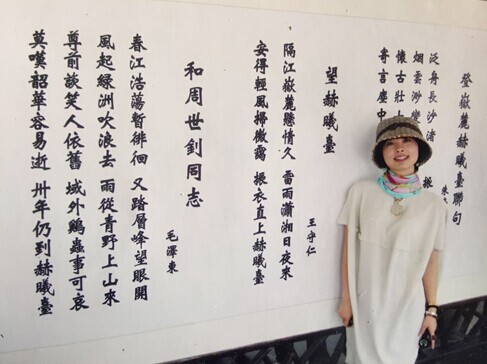 登嶽麓赫曦臺聯句
泛舟長沙渚 振
烟雲渺變
懷古壯
寄言塵中
望赫曦臺
王守仁
隔江嶽麓懸情久 雷雨瀟湘日夜來
安得輕風掃微靄 振衣直上赫曦臺
和周世釗同志
毛澤東
春江浩蕩暫徘徊 又踏層峰望眼開
風起綠洲吹浪去 雨從青野上山來
尊前談笑人依舊 域外鷄蟲事可哀
莫嘆韶華容易逝 卅年仍到赫曦臺